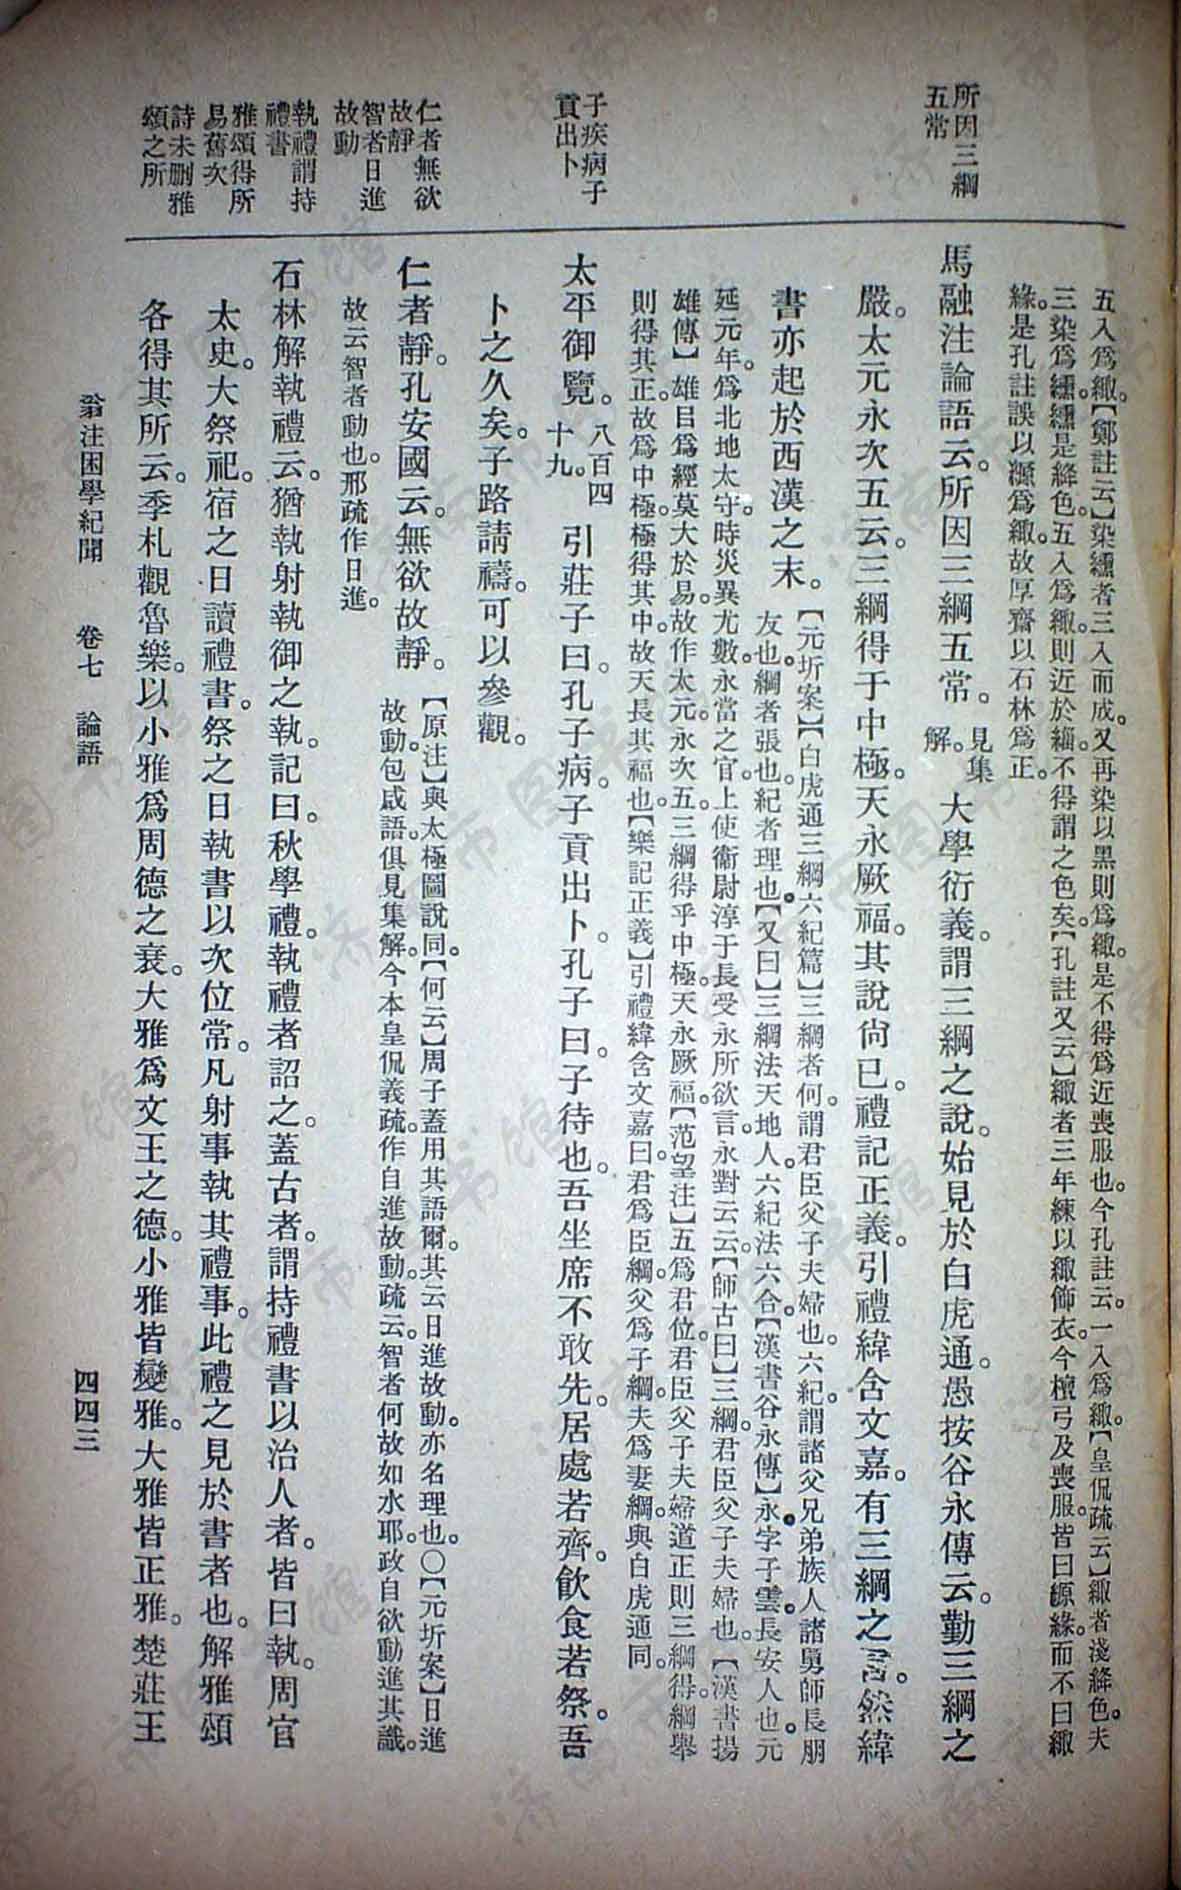 所因三綱
五常
子疾病子
貢出卜
仁者無欲
故靜
智者日進
故動
執禮謂持
禮書
雅頌得所
易舊次
詩未刪雅
頌之所
五入爲緅。【鄭註云】染纁者三入而成。又再染以黑則爲緅。是不得爲近喪服也。今孔註云。一入爲緅。【皇侃疏云】緅者淺絳色。夫
三染爲纁。纁是絳色。五入爲緅。則近於緇。不得謂之色矣。【孔註又云】緅者三年練以緅飾衣。今檀弓及喪服。皆曰縓緣。而不曰緅
緣。是孔註誤以縓爲緅。故厚齋以石林爲正。
馬融注論語云。所因三綱五常。見集解。大學衍義。謂三綱之說。始見於白虎通。愚按谷永傳云。勤三綱之
嚴。太元永次五云。三綱得于中極。天永厥福。其說尙已。禮記正義。引禮緯含文嘉。有三綱之言。然緯
書亦起於西漢之末。【元圻案】【白虎通三綱六紀篇】三綱者何。謂君臣父子夫婦也。六紀。謂諸父兄弟族人諸舅師長朋
友也。綱者張也。紀者理也。【又曰】三綱法天地人。六紀法六合。【漢書谷永傳】永字子雲。長安人也。元
延元年。爲北地太守。時災異尤數。永當之官。上使衞尉淳于長受永所欲言。永對云云。【師古曰】三綱。君臣父子夫婦也。【漢書揚
雄傳】雄目爲經莫大於易。故作太元。永次五。三綱得乎中極。天永厥福。【范望注】五爲君位。君臣父子夫婦道正則三綱得。綱舉
則得其正。故爲中極。極得其中。故天長其福也。【樂記正義】引禮緯含文嘉曰。君爲臣綱。父爲子綱。夫爲妻綱。與白虎通同。
太平御覽。八百四十九。引莊子曰。孔子病。子貢出卜。孔子曰。子待也。吾坐席不敢先。居處若齊。飮食若祭。吾
卜之久矣。子路請禱。可以參觀。
仁者靜。孔安國云。無欲故靜。【原注】與太極圖說同。【何云】周子蓋用其語爾。其云日進故動。亦名理也。○【元圻案】日進
故動。包咸語。俱見集解。今本皇侃義疏。作自進故動。疏云。智者何故如水耶。政自欲動進其識。
故云智者動也。邢疏作日進。
石林解執禮云。猶執射執御之執。記曰。秋學禮。執禮者詔之。蓋古者。謂持禮書以治人者。皆曰執。周官
太史。大祭祀。宿之日讀禮書。祭之日執書以次位常。凡射事執其禮事。此禮之見於書者也。解雅頌
各得其所云。季札觀魯樂。以小雅爲周德之衰。大雅爲文王之德。小雅皆變雅。大雅皆正雅。楚莊王
翁注困學紀聞 卷七 論語 四四三